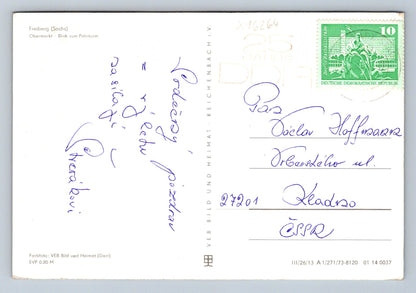 Freiberg (Sachs)
Obermarkt - Blick zum Petriturm
x 16264
10
DEUTSCHE DEMOKRATISCHE REPUBLIK
Srdečný pozdrav
z výletu
zasílají
VEB BILD UND HEIMAT REICHENBACH i. V.
Pan
Václav Hoffmann
Vrbenského ul.
27201 Kladno
ČSSR
Farbfoto: VEB Bild und Heimat (Darr)
EVP 0,20 M
III/26/13 A 1/271/73-8120 01 14 0037